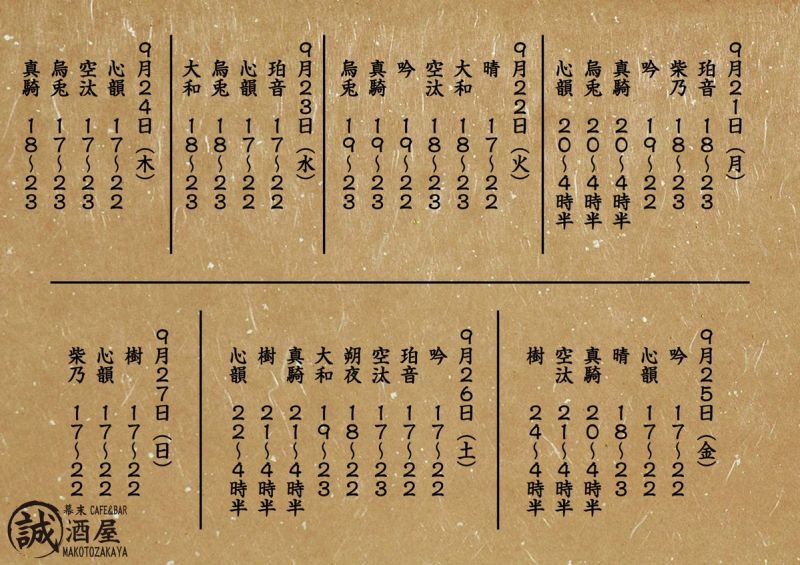 9月21日（月）
珀音 18～23
柴乃 18～23
吟 19～22
真騎 20～4時半
烏兎 20～4時半
心韻 20～4時半
9月22日（火）
晴 17～22
大和 18～23
空汰 18～23
吟 19～22
真騎 19～23
烏兎 19～23
9月23日（水）
珀音 17～22
心韻 17～22
烏兎 18～23
大和 18～23
9月24日（木）
心韻 17～22
空汰 17～23
烏兎 17～23
真騎 18～23
9月25日（金）
吟 17～22
心韻 17～22
晴 18～23
真騎 20～4時半
空汰 21～4時半
樹 24～4時半
9月26日（土）
吟 17～22
珀音 17～22
空汰 17～23
朔夜 18～22
大和 19～23
真騎 21～4時半
樹 21～4時半
心韻 22～4時半
9月27日（日）
樹 17～22
心韻 17～22
柴乃 17～22
幕末 CAFE&BAR
誠酒屋
MAKOTOZAKAYA